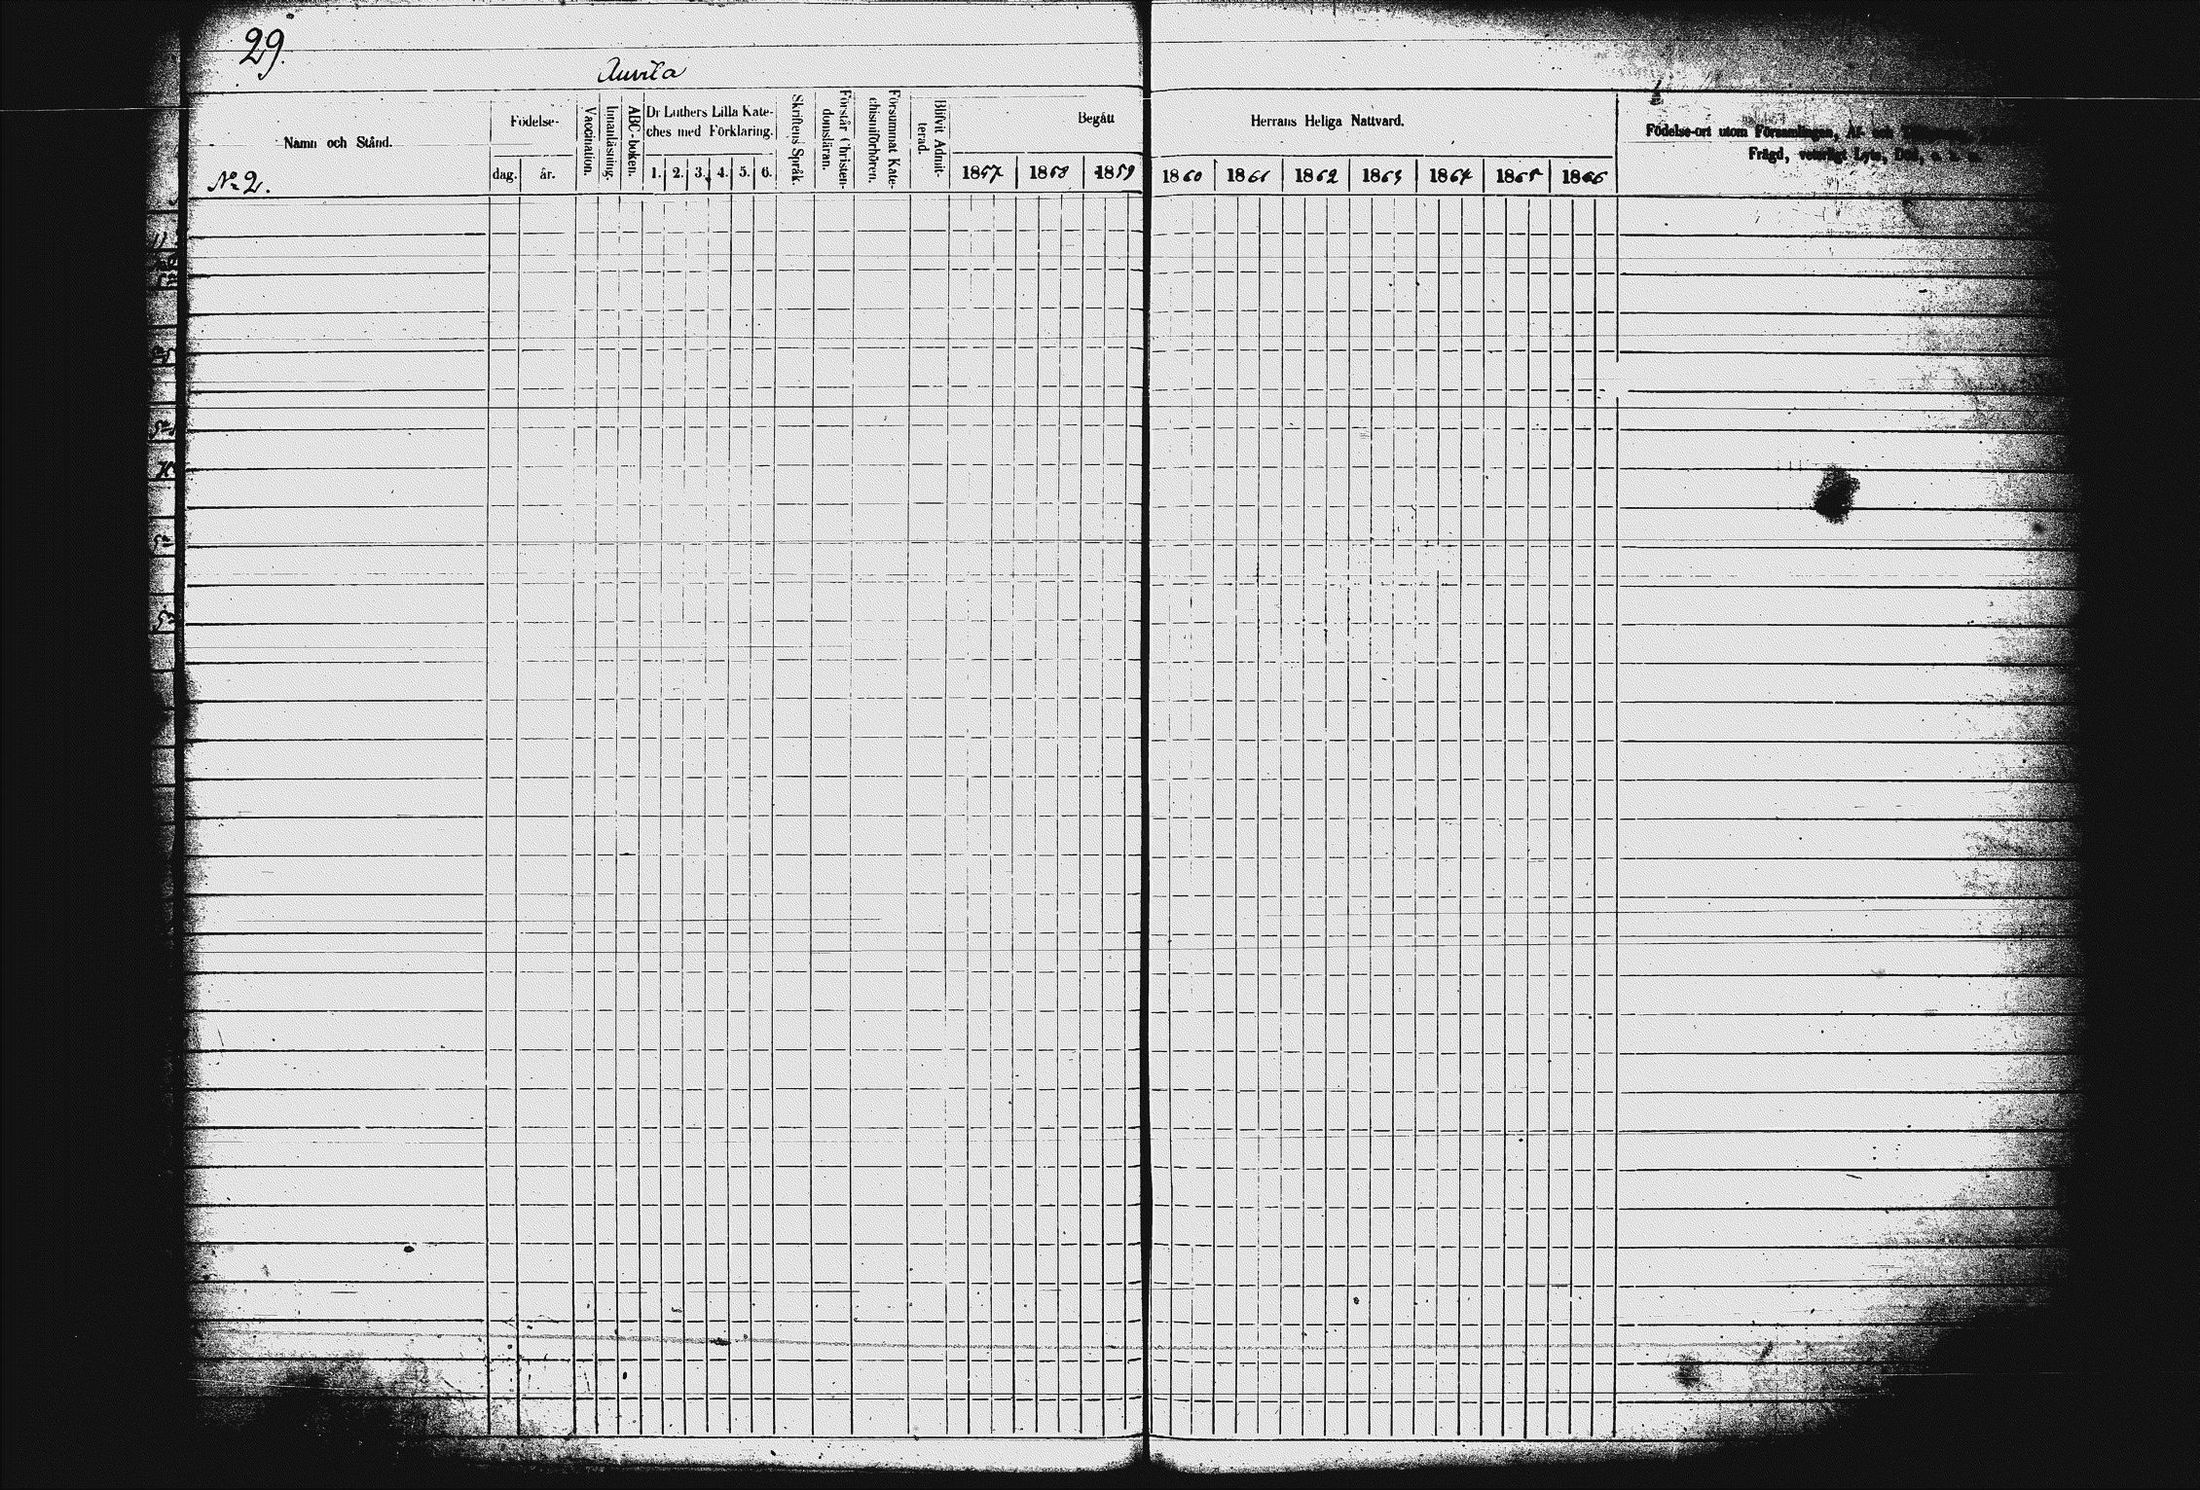 29.
Auvila
Namn och Stånd.
No 2.
Födelse-
dag.
år.
Vaccination.
Innanläsning.
ABC-boken.
Dr Luthers Lilla Kate-
ches med Förklaring.
1. 2. 3. 4. 5. 6.
Skriftens Språk.
Förstår Christen-
domsläran.
Försummat Kate-
chismiförhören.
Blifvit Admit-
terad.
Begått
1857 1858 1859
Herrans Heliga Nattvard.
1860 1861 1862 1863 1864 1865 1866
Födelse-ort utom Församlingen, Af- och
Frägd, Lyte, Död,